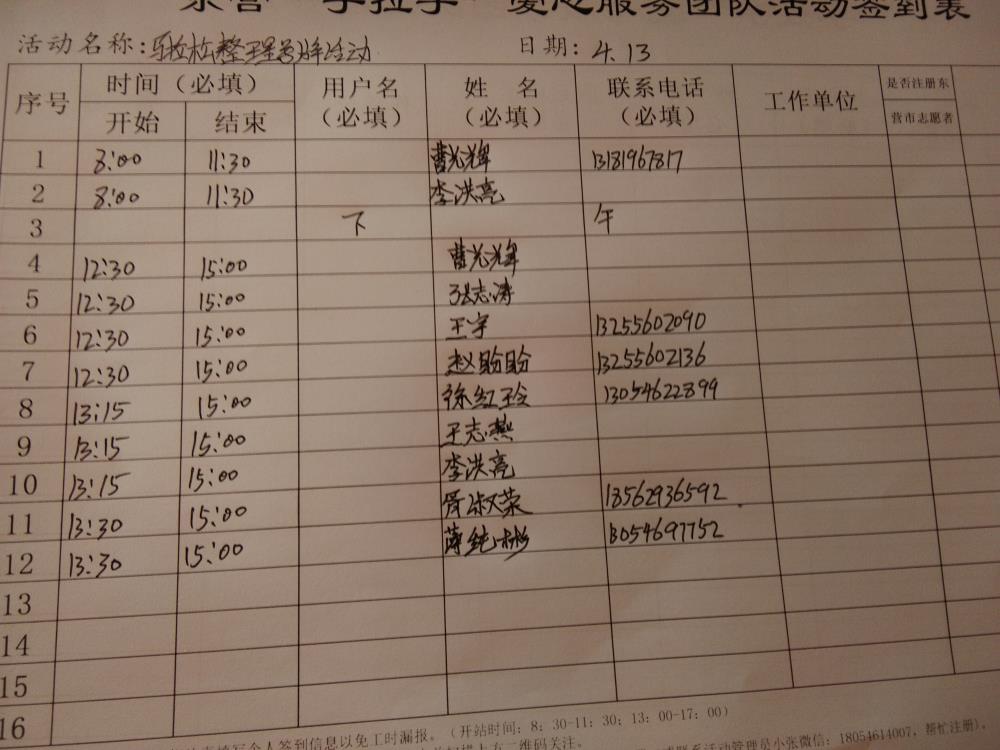 东营"手拉手"爱心服务团队活动签到表
活动名称: 日期: 4.13
序号 时间（必填） 用户名（必填） 姓 名（必填） 联系电话（必填） 工作单位 是否注册东营市志愿者
开始 结束
1 8:00 11:30 曹光辉 13181967817
2 8:00 11:30 李洪亮
3 下 午
4 12:30 15:00 曹光辉
5 12:30 15:00 张志涛
6 12:30 15:00 王宇 13255602090
7 12:30 15:00 赵盼盼 13255602136
8 13:15 15:00 徐红玲 13054622899
9 13:15 15:00 王志燕
10 13:15 15:00 李洪亮
11 13:30 15:00 胥淑荣 18562936592
12 13:30 15:00 薄纯彬 13054697752
13
14
15
16
填写个人签到信息以免工时漏报。（开站时间：8：30-11：30；13：00-17：00）
扫描上方二维码关注。 联系活动管理员小张微信：18054614007，帮忙注册）。